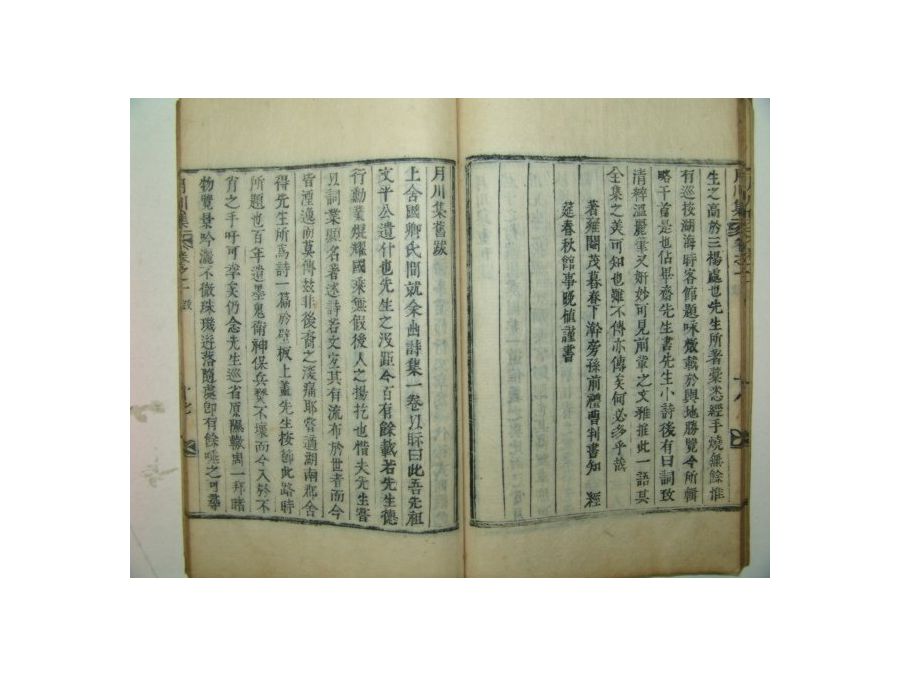 月川集 卷之二
生之高於三楊處也先生所著藁悉經手燒無餘惟
有巡按湖海時客館題咏微載於輿地勝覽今所輯
略干首是也佔畢齋先生書先生小詩後有曰詞致
清粹溫麗筆又妍妙可見前輩之文雅推此一語其
全集之美可知也雖不傳亦傳矣何必多乎哉
著雍閹茂暮春下澣旁孫前禮曹判書知 經
筵春秋館事 植謹書
月川集舊跋
上舍國卿氏間就余曲詩集一卷以眎曰此吾先祖
文平公遺什也先生之沒距今百有餘載若先生德
行勳業焜耀國乘無假後人之揚扢也惜夫先生嘗
以詞業顯名著述詩若文宜其有流布於世者而今
皆湮 而莫傳玆非後裔之 痛耶嘗過湖南郡舍
得先生所爲詩一篇於壁板上蓋先生按節此路時
所題也百年遺墨鬼衛神保兵燹不壞而今入 不
肖之手吁可幸矣仍念先生巡省原隰轍周一 睹
物覽景吟灑不徹珠璣迸落隨處卽有餘唾之可摹
月川集 卷之二 跋